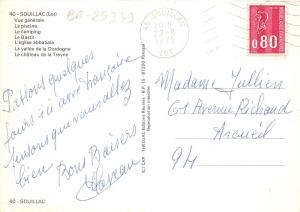 40 - SOUILLAC (Lot)
Vue générale
La piscine
Le camping
Le Bastit
L'église abbatiale
La vallée de la Dordogne
Le château de la Treyne
BR-25339
46 SOUILLAC
LOT
0.80
Passons quelques
jours ici avec Françoise
Pensons que vous allez
bien Bons Baisers
Madame Jullien
61 Avenue Richaud
Arcueil
94
ICI CAP - THEOJAC Editions Réunies - B.P. 15 - 87350 Panazol
Reproduction interdite
40 - SOUILLAC